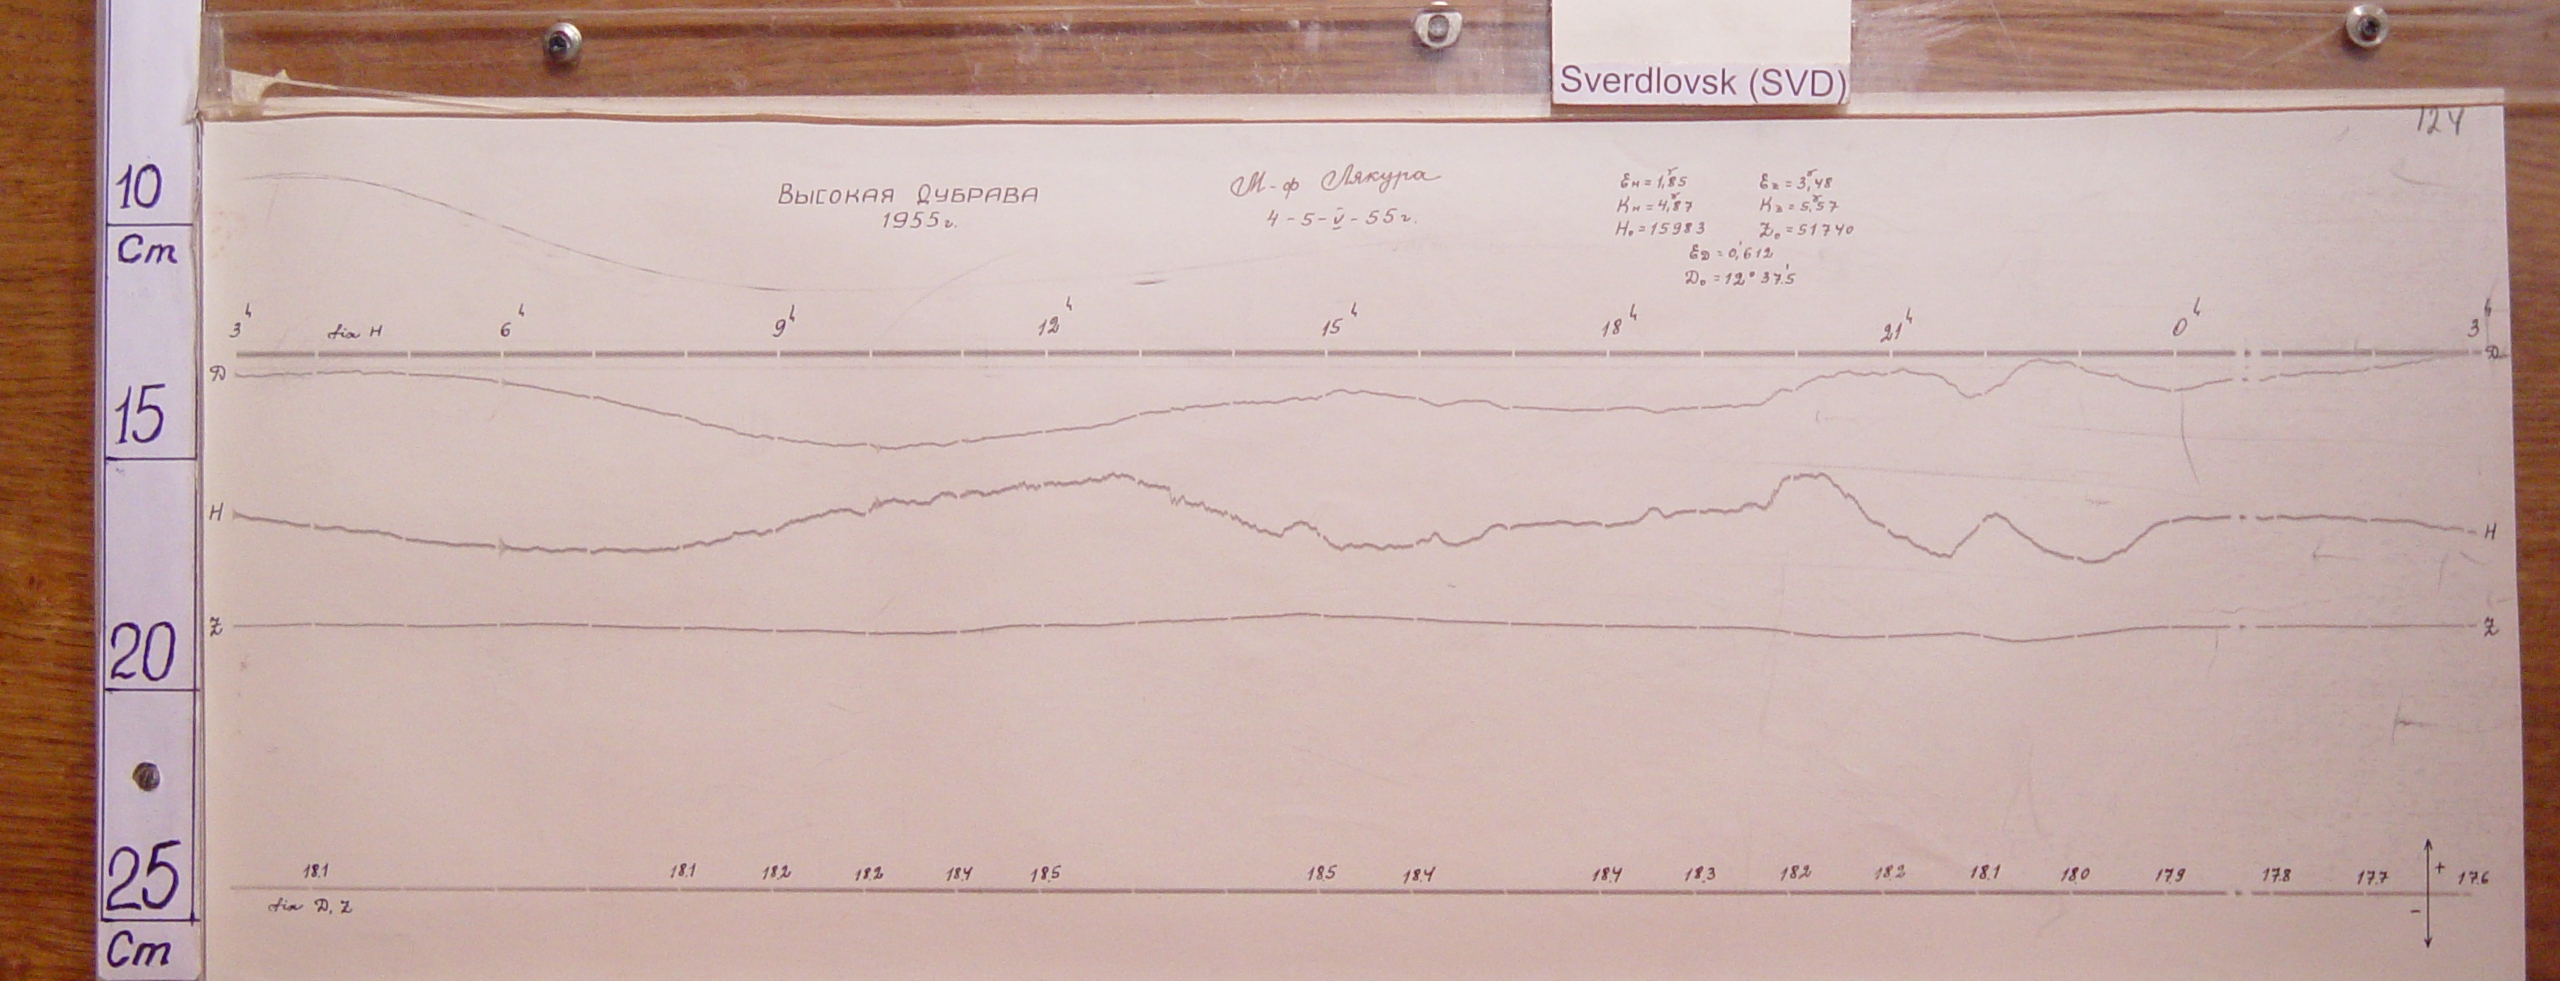 Sverdlovsk (SVD)
124
10
Cm
15
20
25
Cm
ВЫСОКАЯ ДУБРАВА
1955г.
М-ф Лякура
4-5-V-55г.
Ен=1,85 Ez=3,48
Кн=4,87 Kz=5,57
H₀=15983 Z₀=51740
ЕD=0,612
D₀=12°37,5
3ʰ fix H 6ʰ 9ʰ 12ʰ 15ʰ 18ʰ 21ʰ 0ʰ 3ʰ
D D
H H
Z Z
18.1 18.1 18.2 18.2 18.4 18.5 18.5 18.4 18.4 18.3 18.2 18.2 18.1 18.0 17.9 17.8 17.7 + 17.6
fix D, Z −